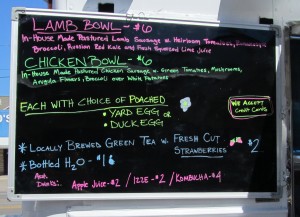 LAMB BOWL - $6
In-House Made Pastured Lamb Sausage w/ Heirloom Tomatoes,
Broccoli, Russian Red Kale and Fresh Squeezed Lime Juice
CHICKEN BOWL - $6
In-House Made Pastured Chicken Sausage w/ Green Tomatoes, Mushrooms,
Broccoli over White Potatoes
EACH WITH CHOICE OF POACHED
• YARD EGG
OR
• DUCK EGG
WE ACCEPT
Credit Cards
* LOCALLY BREWED GREEN TEA w/ FRESH CUT
STRAWBERRIES $2
* BOTTLED H2O - $1
Drinks:
APPLE JUICE - $2 / IZZE - $2 / KOMBUCHA - $4